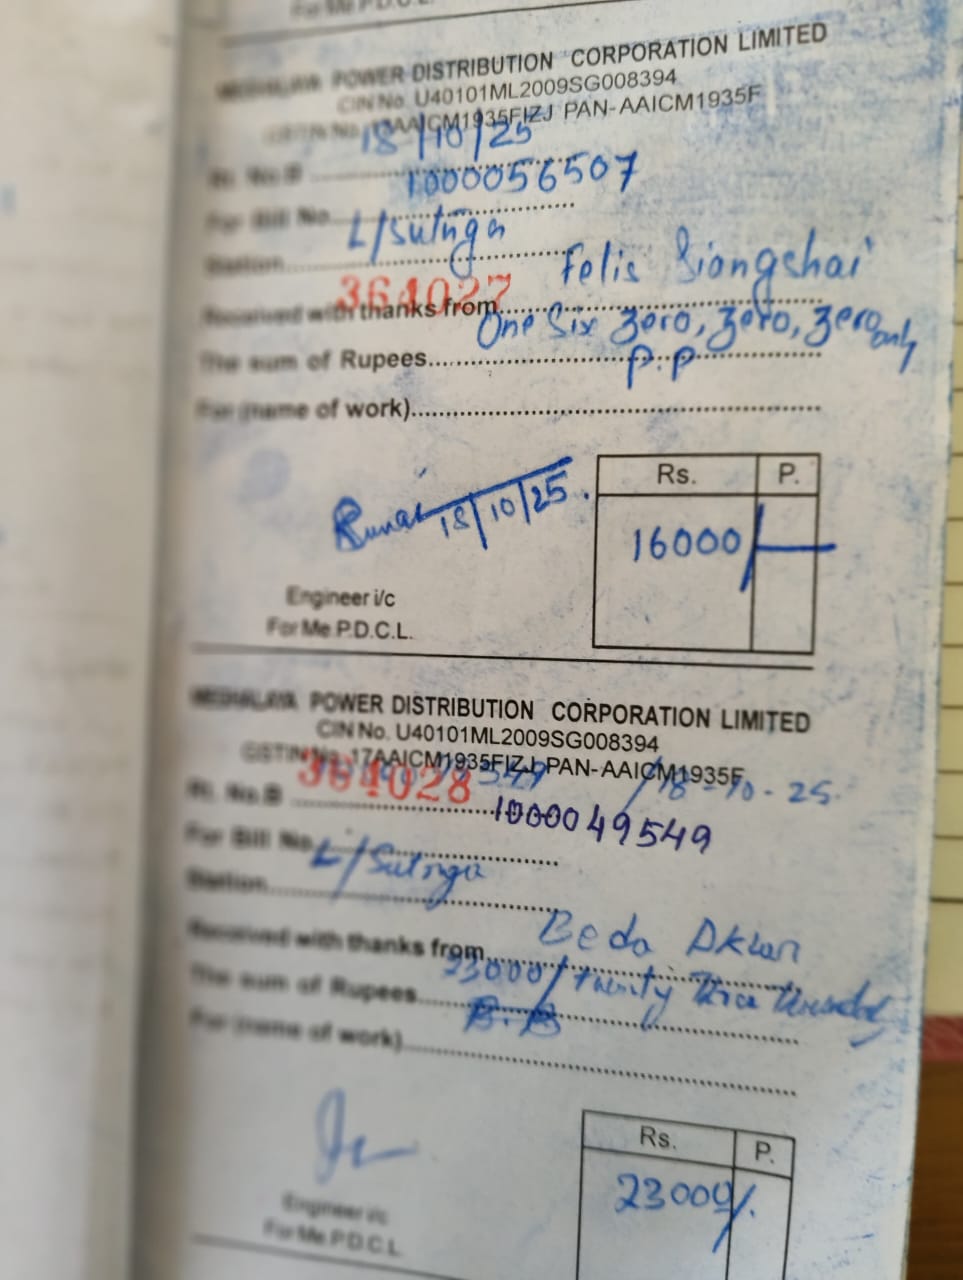 For Me.P.D.C.L.
MEGHALAYA POWER DISTRIBUTION CORPORATION LIMITED
CIN No. U40101ML2009SG008394
GSTIN No. 17AAICM1935FIZJ PAN-AAICM1935F
18/10/25
Rt. No.B
1000056507
For Bill No.
L/Sutnga
Station
364027
Felis Siangshai
Received with thanks from
One Six Zero, Zero, Zero only
The sum of Rupees
P.P
For (name of work)
Rs. P.
18/10/25
16000/-
Engineer i/c
For Me.P.D.C.L.
MEGHALAYA POWER DISTRIBUTION CORPORATION LIMITED
CIN No. U40101ML2009SG008394
GSTIN No. 17AAICM1935FIZJ PAN-AAICM1935F
364028 18-10-25
Rt. No.B
1000049549
For Bill No.
L/Sutnga
Station
Beda Dkhar
Received with thanks from
23000/ Twenty Three thousand
The sum of Rupees
B.B
For (name of work)
Rs. P.
23000/.
Engineer i/c
For Me.P.D.C.L.